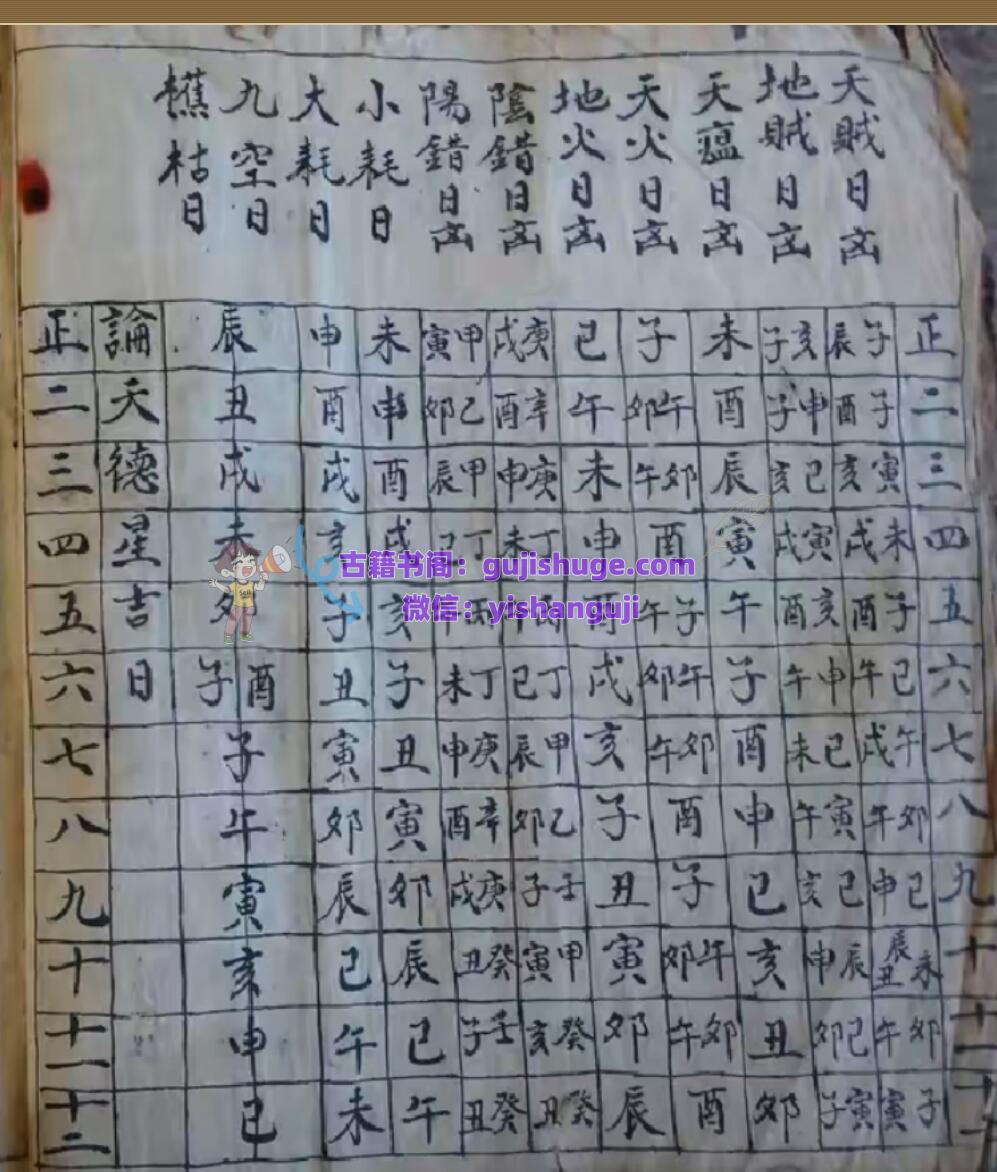 天賊日㐫
地賊日㐫
天瘟日㐫
天火日㐫
地火日㐫
陰錯日㐫
陽錯日㐫
小耗日
大耗日
九空日
樵枯日
正 子辰 亥子 未 子 巳 庚戌 甲寅 未 申 辰 論 正
二 子酉 申子 酉 午卯 午 辛酉 己卯 申 酉 丑 天 二
三 寅亥 巳亥 辰 卯午 未 庚申 甲辰 酉 戌 戌 德 三
四 未戌 寅戌 寅 酉 申 丁未 丁巳 戌 亥 未 星 四
古籍书阁：gujishuge.com
五 子酉 亥酉 午 子午 酉 亥 子 吉 五
微信：yishanguji
六 巳午 申午 子 午卯 戌 丁巳 丁未 子 丑 酉子 日 六
七 午戌 巳未 酉 卯午 亥 甲辰 庚申 丑 寅 子 七
八 卯午 寅午 申 酉 子 乙卯 辛酉 寅 卯 午 八
九 巳申 巳亥 巳 子 丑 壬子 庚戌 卯 辰 寅 九
十 未辰丑 辰申 亥 午卯 寅 甲寅 癸丑 辰 巳 亥 十
十一 卯午 巳卯 丑 卯午 卯 癸亥 壬子 巳 午 申 十一
十二 子寅 寅子 卯 酉 辰 癸丑 癸丑 午 未 巳 十二